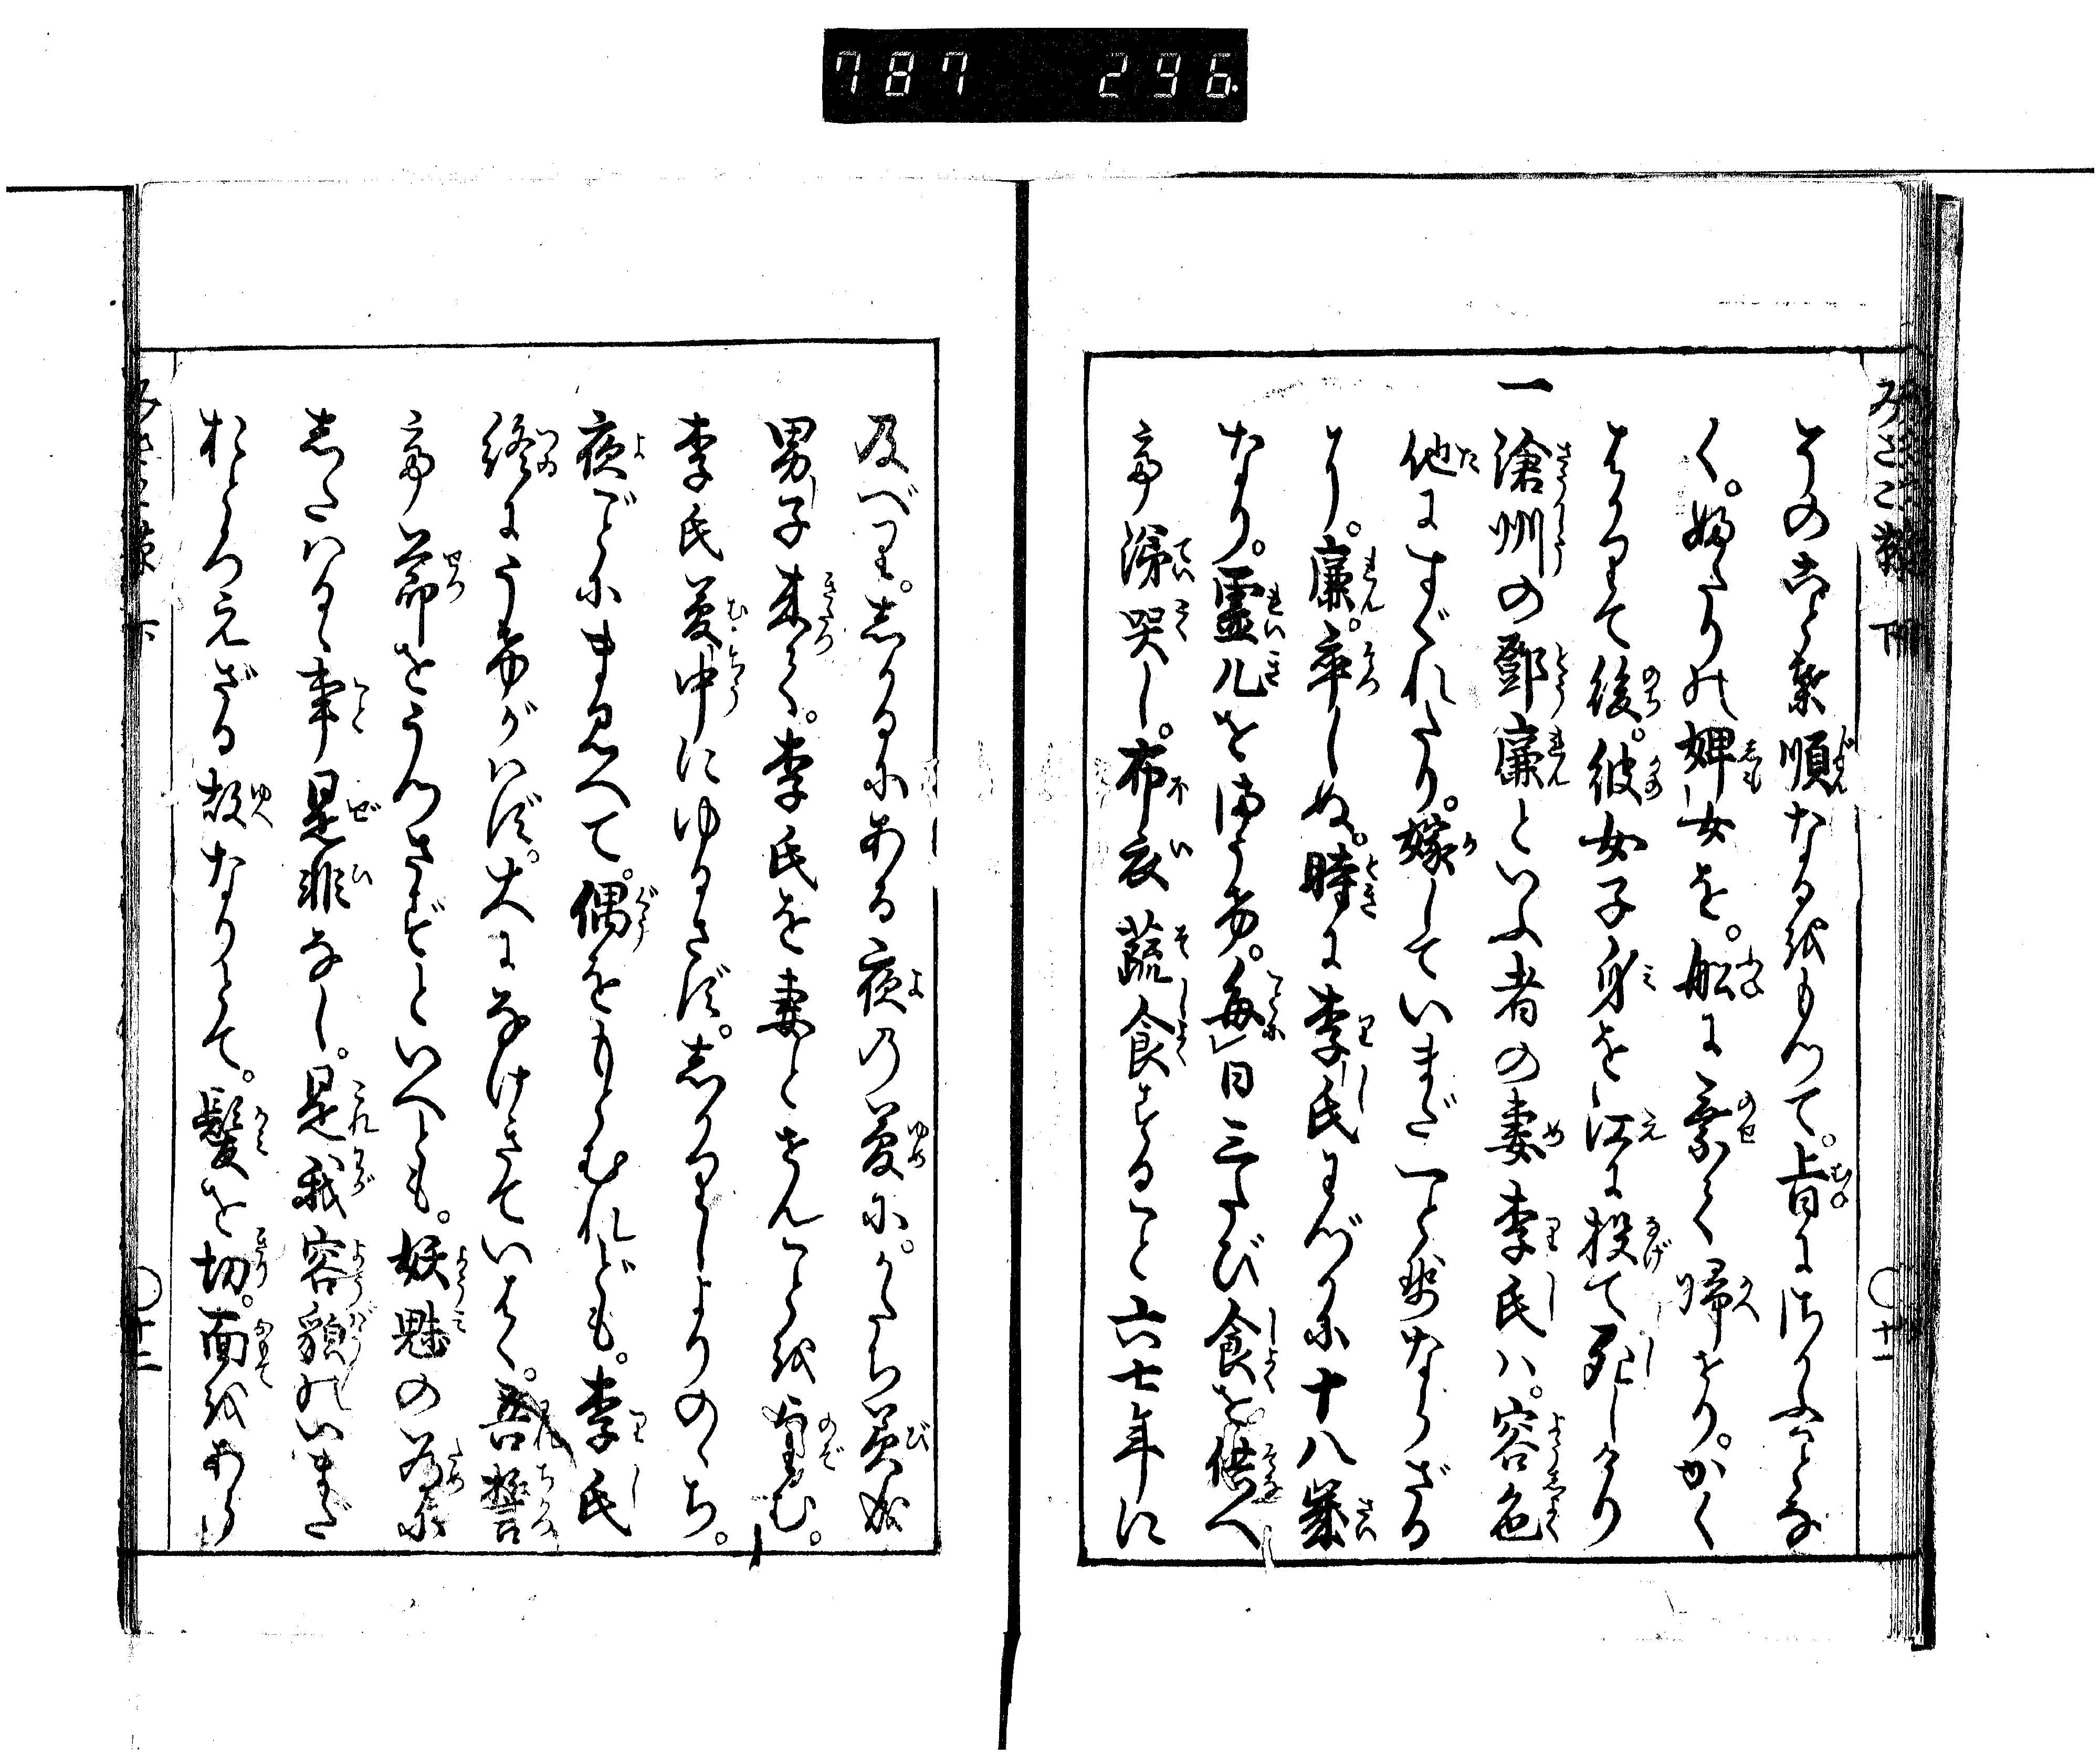 787 296
みさご草 下 ○十一
その志柔順なるをもつて。旨にさかふことな
く。婦たりの婢女を。船に乗て帰せり。かく
さりて後。彼女子身を江に投て死しけり
一 滄州の鄧廉といふ者の妻李氏ハ。容色
他にすぐれたり。嫁していまだ一とせならざる
より。廉。卒しぬ。時に李氏わづかに十八歳
なり。霊几をまうけ。毎日三たび食を供へ
て涕哭し。布衣蔬食すること六七年に
及べり。しかるにある夜の夢に。かたち美成
男子来て。李氏を妻とせんことを望む。
李氏夢中にゆるさず。しかりしよりのち。
夜ごとにまみへて。偶をもとむれども。李氏
終にうけがハず。大になげきていはく。吾誓
て節をうつさずといへども。妖魅の為に
したハるゝ事是非なし。是我容貌のいまだ
おとろえざる故なりとて。髪を切。面をあら
みさご草 下 ○十二